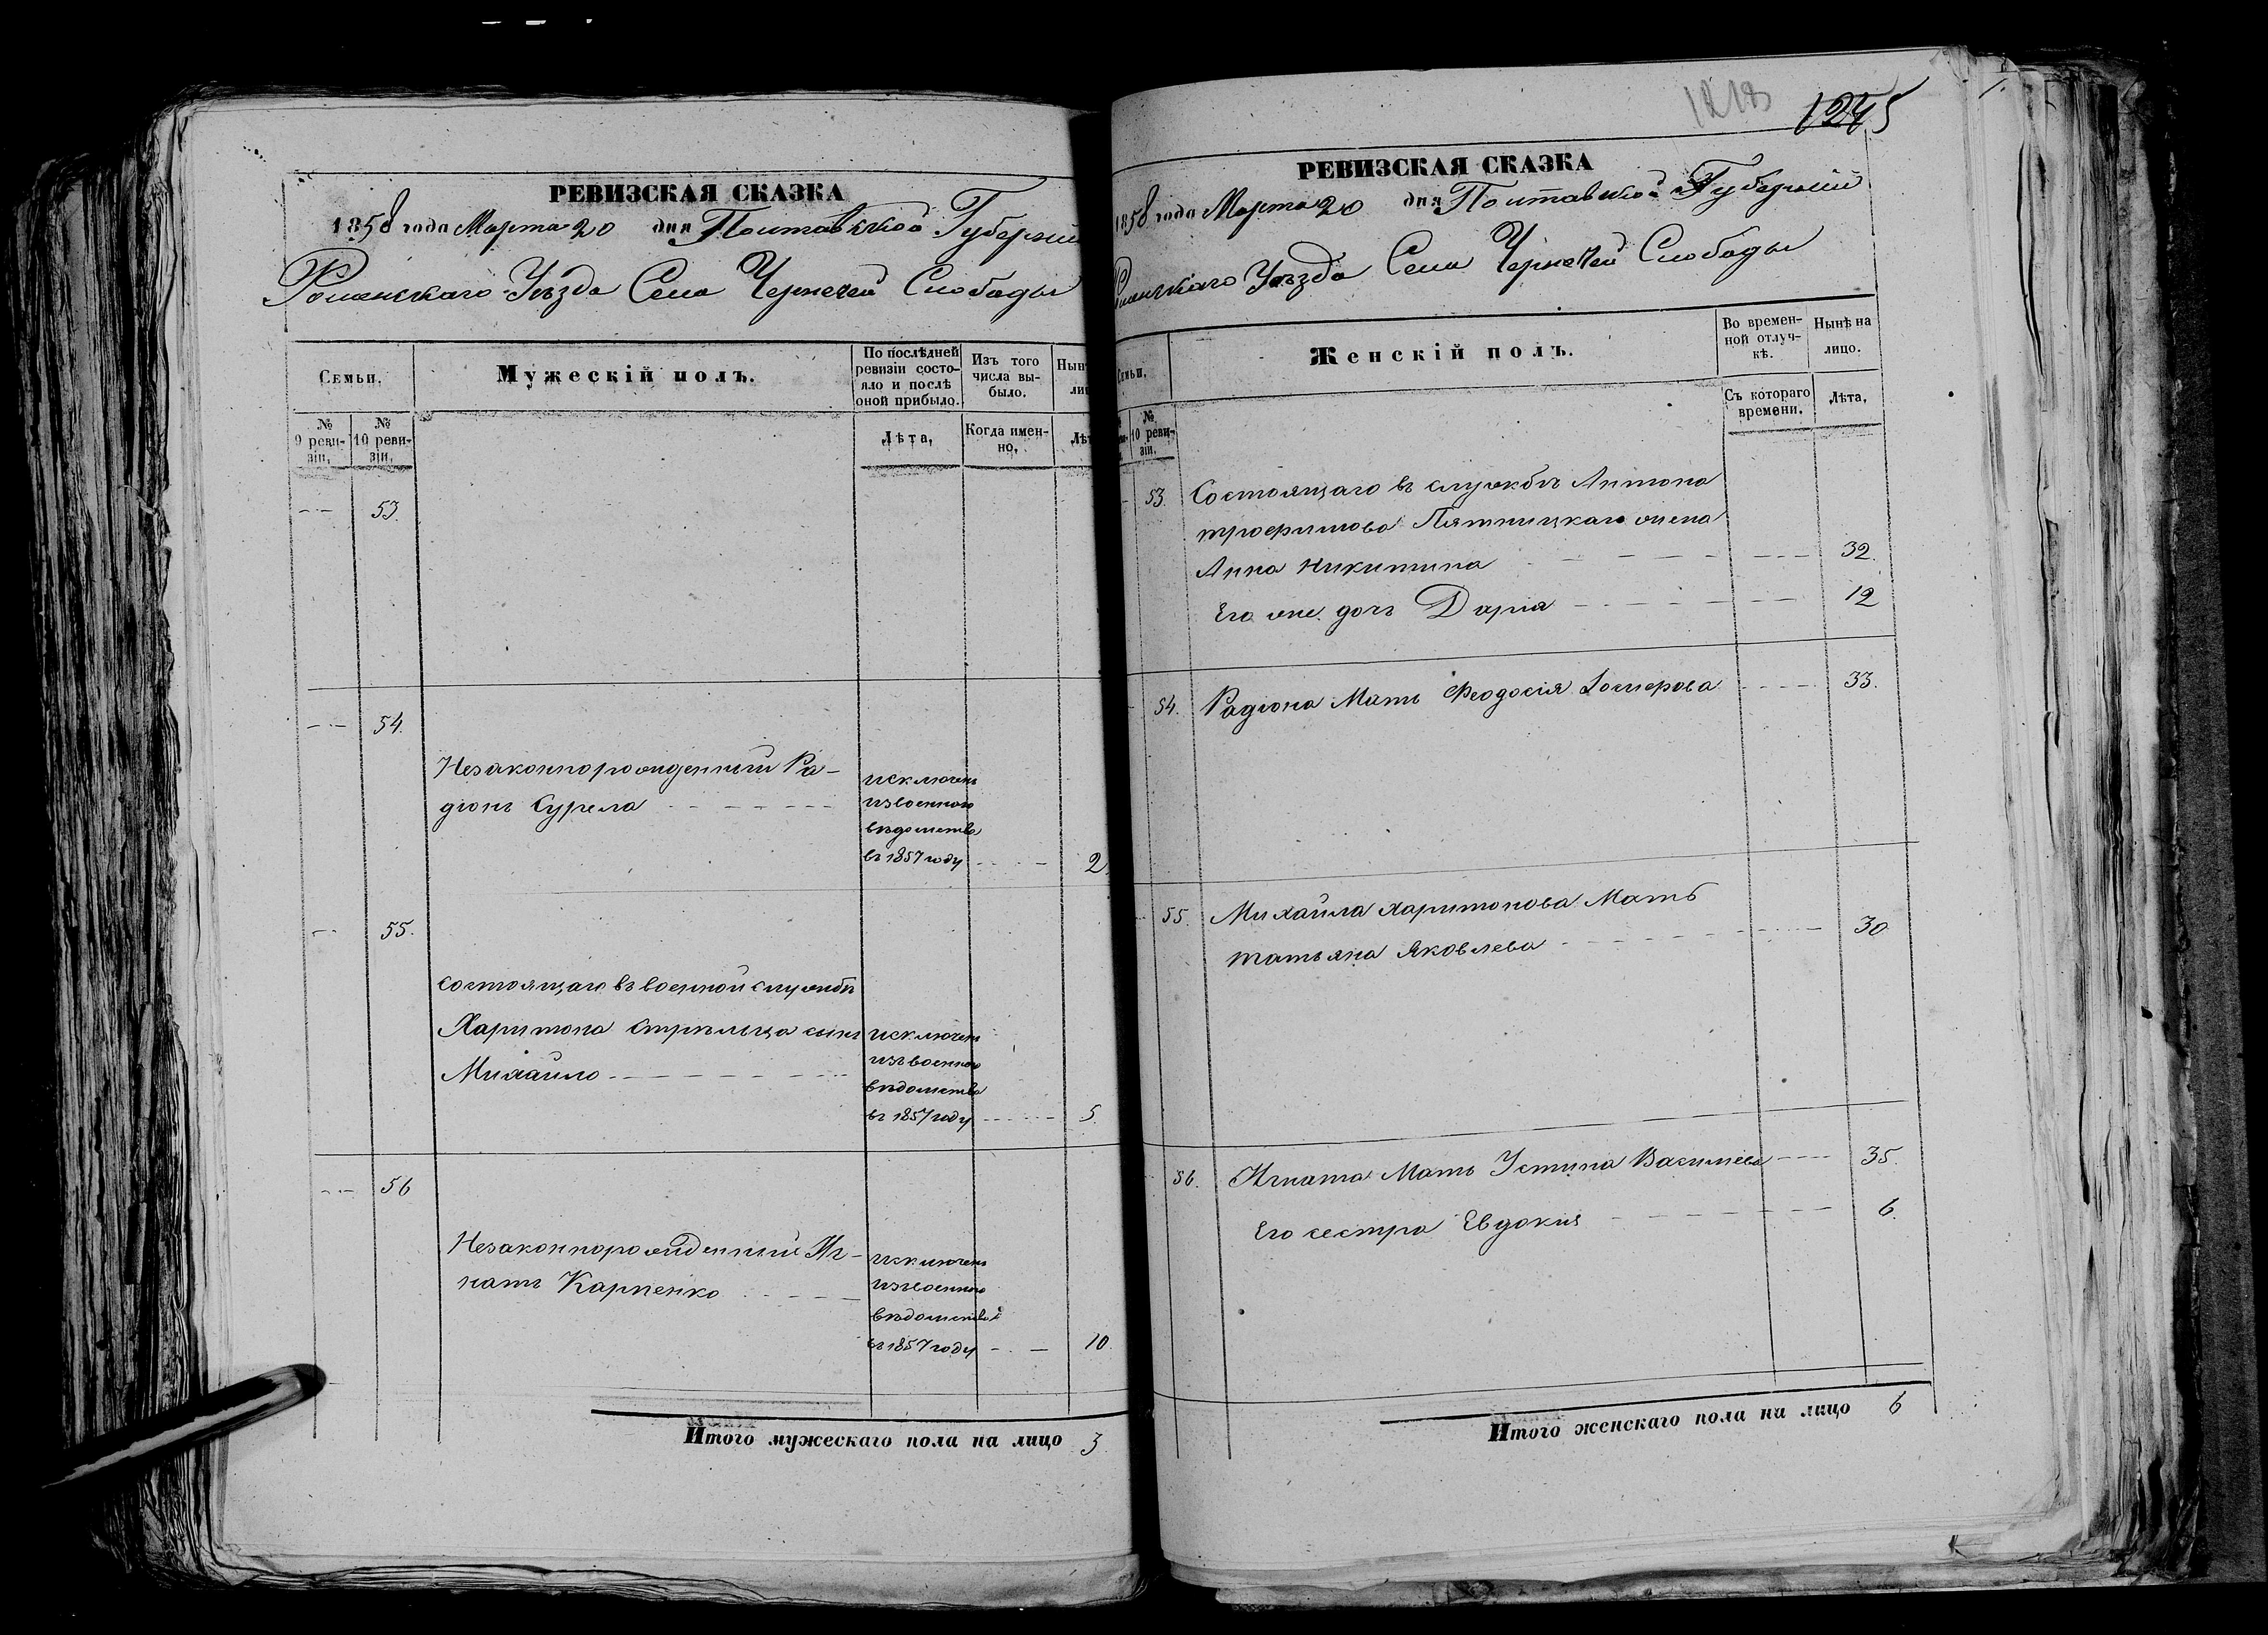 РЕВИЗСКАЯ СКАЗКА
1858 года Марта 20 дня Полтавской Губернiи
Роменскаго Уѣзда Села Чернечей Слободы
Семьи.
Мужескій полъ.
По послѣдней ревизіи состояло и послѣ оной прибыло.
Изъ того числа выбыло.
№ 9 ревизіи.
№ 10 ревизіи.
Лѣта.
Когда именно.
53.
54.
Незаконнорожденный Ра-
дiонъ Курела
исключенъ
изъ военного
вѣдомства
въ 1857 году
2
55.
состоящаго въ военной службѣ
Харитона Стрѣльца сынъ
Михайло
исключенъ
изъ военного
вѣдомства
въ 1857 году
5.
56
Незаконнорожденный Иг-
натъ Карпенко
исключенъ
изъ военного
вѣдомства
въ 1857 году
10.
Итого мужескаго пола на лицо 3
1218
1245
РЕВИЗСКАЯ СКАЗКА
1858 года Марта 20 дня Полтавской Губернiи
Роменскаго Уѣзда Села Чернечей Слободы
Семьи.
Женскій полъ.
Во временной отлучкѣ.
Нынѣ на лицо.
№ 10 ревизіи.
Съ котораго времени.
Лѣта.
53. Состоящаго въ службѣ Антона
трофимова Пятницкаго жена
Анна Никитина 32.
Его же дочь Дарiя 12
54. Радiона Мать Феодосiя 33.
55. Михайла Харитонова Мать
татьяна Яковлева 30
56. Игната Мать Устина Васильева 35.
Его сестра Евдокiя 6.
Итого женскаго пола на лицо 6